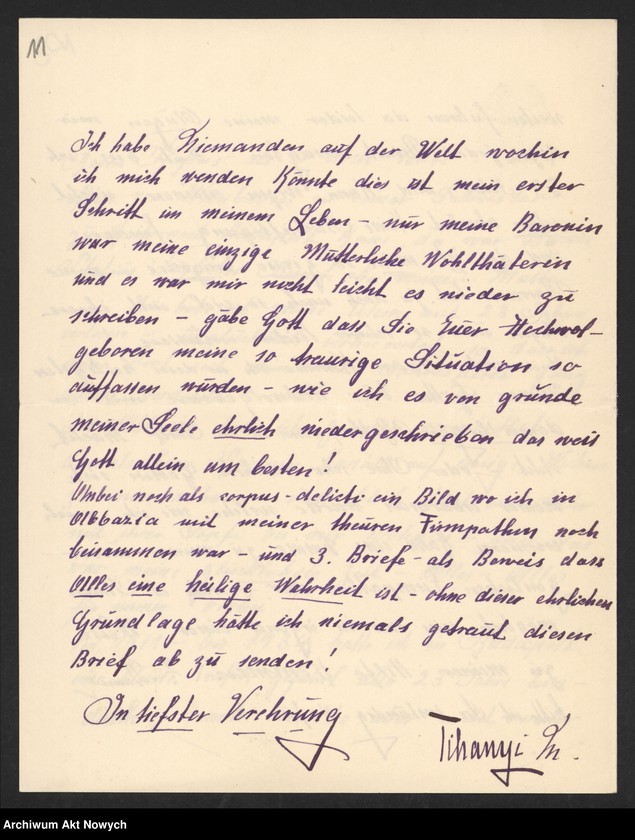 11
Ich habe Niemanden auf der Welt wochin
ich mich wenden könnte dies ist mein erster
Schritt im meinem Leben – nur meine Baronin
war meine einzige Mütterliche Wohlthäterin
und es war mir nicht leicht es nieder zu
schreiben – gäbe Gott dass Sie Euer Hochwol-
geboren meine so traurige Situation so
auffassen würden – wie ich es von grunde
meiner Seele ehrlich niedergeschrieben das weis
Gott allein am besten!
Anbei noch als corpus-delicti ein Bild wo ich in
Abbazia mit meiner theuren Firmpathin noch
beisammen war – und 3. Briefe – als Beweis dass
Alles eine heilige Wahrheit ist – ohne dieser ehrlichen
Grundlage hätte ich niemals getraut diesen
Brief ab zu senden!
In tiefster Verehrung
Tihanyi
Archiwum Akt Nowych